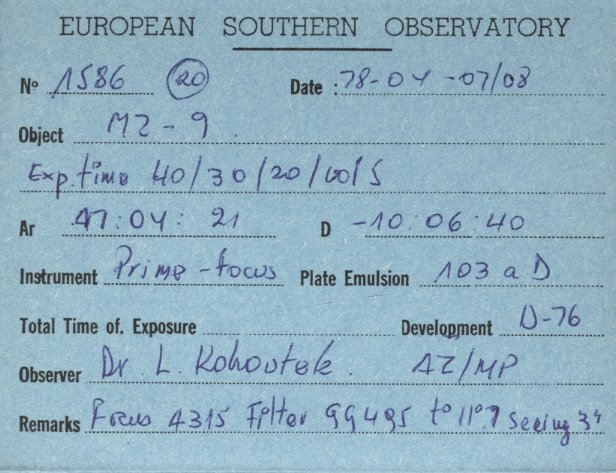 EUROPEAN SOUTHERN OBSERVATORY
Nº 1586 (20) Date : 78-04-07/08
Object M2-9
Exp. time 40/30/20/10/5
Ar 17:04:21 D -10:06:40
Instrument Prime-focus Plate Emulsion 103 a D
Total Time of. Exposure Development D-76
Observer Dr L. Kohoutek. AZ/MP
Remarks Focus 4315 Filter GG495 tº 11º.7 Seeing 3"